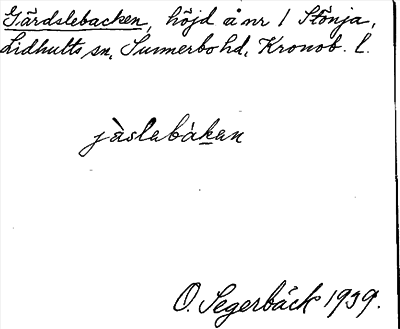 Gärdslebacken, höjd å nr 1 Stönja,
Lidhults sn, Sunnerbo hd, Kronob. l.
jàslabàkan
O. Segerbäck 1939.